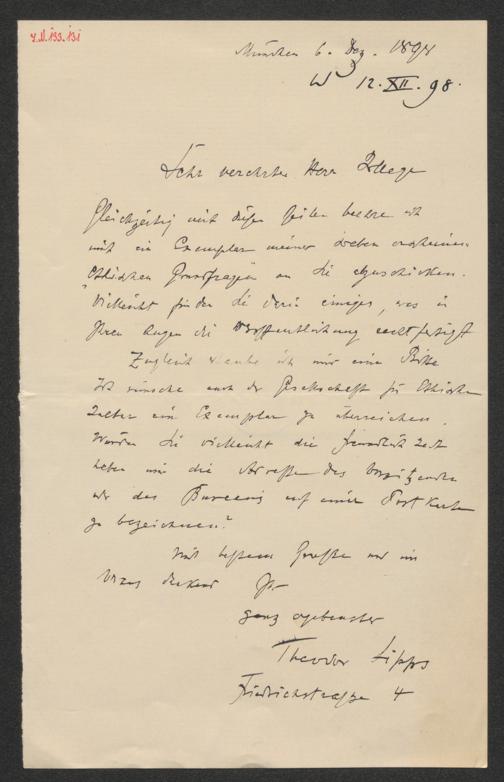 I.N. 193.131
München 6. Dez. 1898
W 12.XII.98.
Sehr verehrter Herr College
Gleichzeitig mit diesen Zeilen beehre ich
mich ein Exemplar meiner soeben erschienenen
"Ethischen Grundfragen" an Sie abzuschicken.
Vielleicht finden Sie darin einiges, was in
Ihren Augen die Veröffentlichung rechtfertigt
Zugleich erlaube ich mir eine Bitte
Ich wünsche auch der Gesellschaft für Ethische
Cultur ein Exemplar zu überreichen.
Würden Sie vielleicht die Freundlichkeit
haben mir die Adresse des Vorsitzenden
oder des Bureaus auf einer Postkarte
zu bezeichnen?
Mit bestem Grusse und im
Voraus dankend Ihr
ganz ergebenster
Theodor Lipps
Friedrichstrasse 4